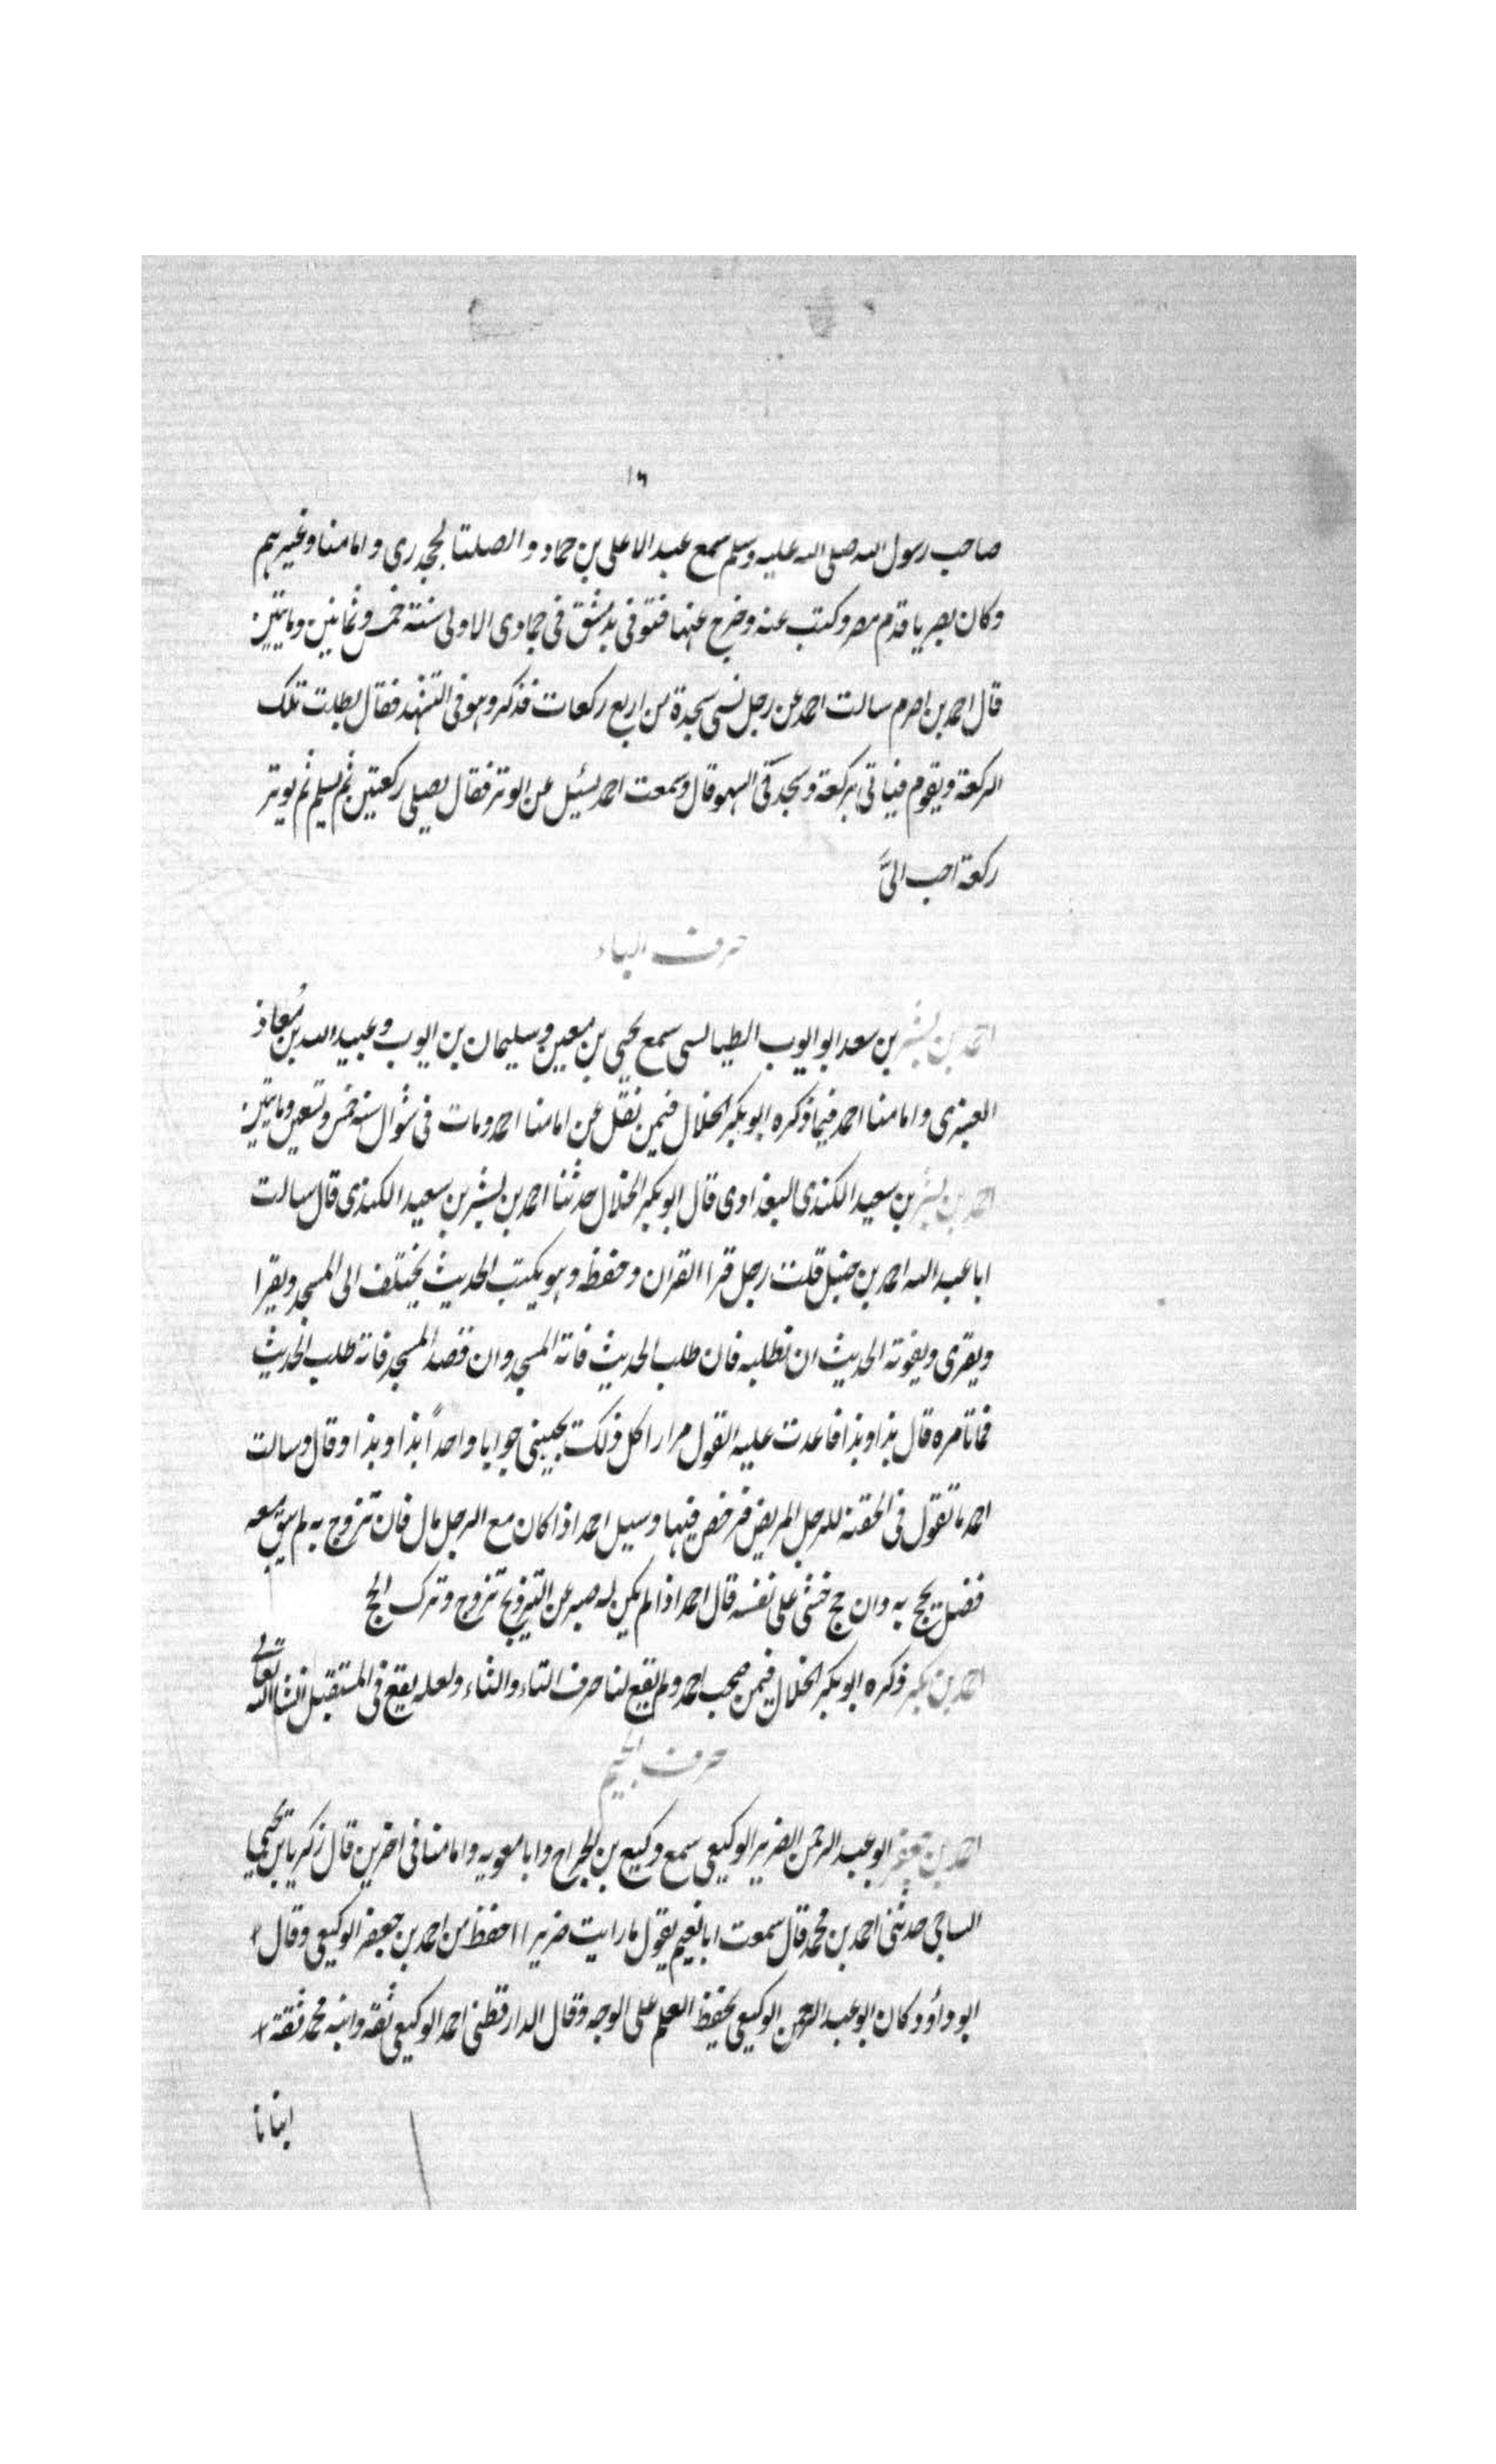 ١٦
صاحب رسول الله صلى الله عليه وسلم سمع عبد الاعلى بن حماد و الصلت الجحدرى و امامنا وغيرهم
وكان بصريا قدم مصر وكتب عنه وخرج عنها فتوفى بدمشق فى جمادى الاولى سنة خمس وثمانين ومايتين
قال احمد بن اصرم سالت احمد عن رجل نسى سجدة من اربع ركعات فذكر وهو فى التشهد فقال بطلت تلك
الركعة ويقوم فياتى بركعة وسجدتى السهو قال وسمعت احمد يسئل عن الوتر فقال يصلى ركعتين ثم يسلم ثم يوتر
ركعة احب الىَّ
حرف الباء
احمد بن بشر بن سعد ابو ايوب الطيالسى سمع يحيى بن معين وسليمان بن ايوب وعبيد الله بن مُعاذ
العنبرى و امامنا احمد فيما ذكره ابو بكر الخلال فيمن نقل عن امامنا احمد ومات فى شوال سنة خمس وتسعين ومايتين
احمد بن بشر بن سعيد الكندى البغدادى قال ابو بكر الخلال حدثنا احمد بن بشر بن سعيد الكندى قال سالت
ابا عبد الله احمد بن حنبل قلت رجل قرا القران وحفظ وهو يكتب الحديث يختلف الى المسجد ويقرا
ويقرى ويفوته الحديث ان نطلبه فان طلب الحديث فاته المسجد وان قصد المسجد فاته طلب الحديث
فما تامره قال بذا وبذا فاعدت عليه القول مرارا كل ذلك يجيبنى جوابا واحداً بذا وبذا وقال وسالت
احمد ما تقول فى الحقنة للرجل المريض فرخص فيها وسيل احمد اذا كان مع الرجل مال فان تزوج به لم يبق معه
فضل يحج به وان حج خشى على نفسه قال احمد اذا لم يكن له صبر عن التزويج تزوج وترك الحج
احمد بن بكر ذكره ابو بكر الخلال فيمن صحب احمد ولم يقع لنا حرف التاء والثاء ولعله يقع فى المستقبل انشا الله تعالى
حرف الجيم
احمد بن جعفر ابو عبد الرحمن الضرير الوكيعى سمع وكيع بن الجراح وابا معويه وامامنا فى اخرين قال زكريا بن يحيى
الساجى حدثنى احمد بن محمد قال سمعت ابا نعيم يقول ما رايت ضريرا احفظ من احمد بن جعفر الوكيعى وقال
ابو داؤد كان ابو عبد الرحمن الوكيعى يحفظ العلم على الوجه وقال الدارقطنى احمد الوكيعى ثقة وابنه محمد ثقة
انبانا